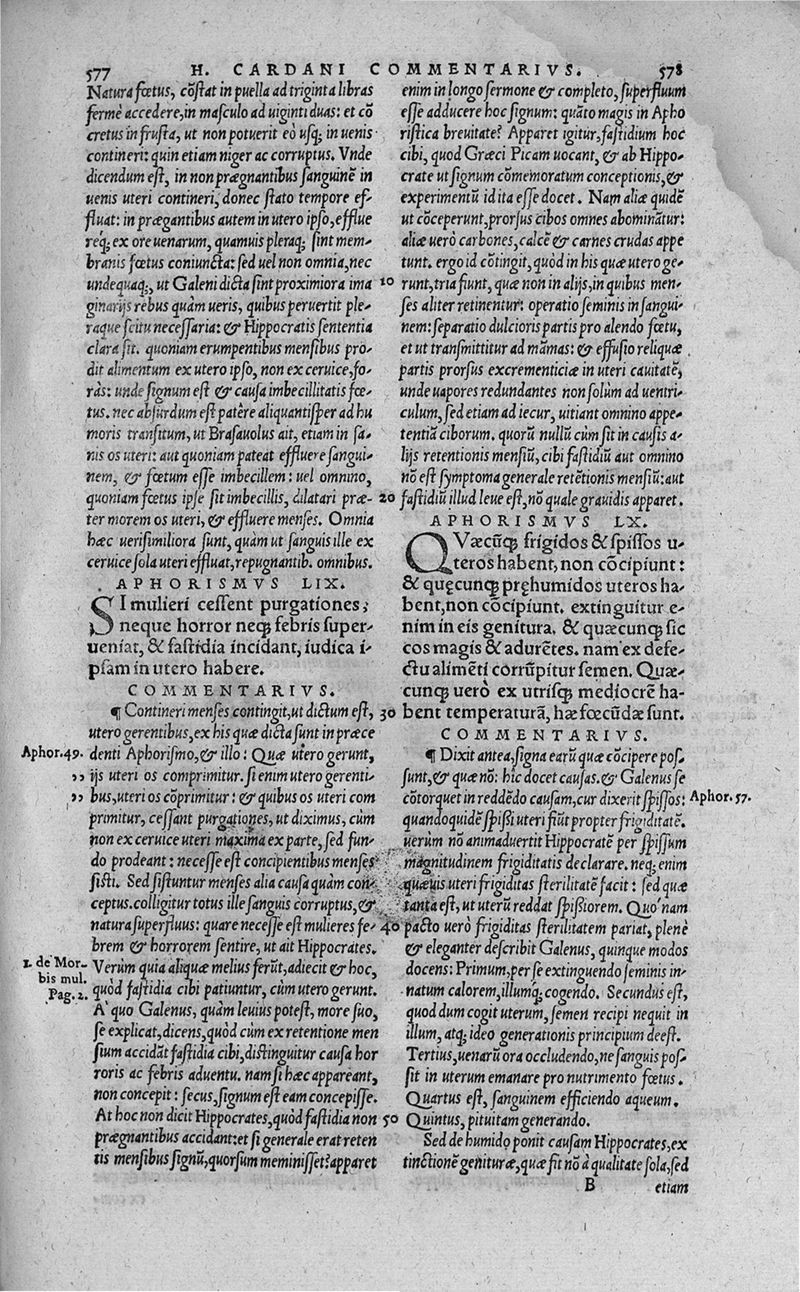 577 H. CARDANI COMMENTARIVS. 578
Natura fœtus, cõstat in puella ad triginta libras
fermè accedere, in masculo ad uiginti duas: et cõ
cretus in frusta, ut non potuerit eò usq; in uenis
contineri: quin etiam niger ac corruptus. Vnde
dicendum est, in non prægnantibus sanguinẽ in
uenis uteri contineri, donec stato tempore ef-
fluat: in prægantibus autem in utero ipso, efflue
req́; ex ore uenarum, quamuis pleraq; sint mem-
branis fœtus coniuncta: sed uel non omnia, nec
undequaq;, ut Galeni dicta sint proximiora ima 10
ginarijs rebus quàm ueris, quibus peruertit ple-
raque scitu necessaria: & Hippocratis sententia
clara sit. quoniam erumpentibus mensibus pro-
dit alimentum ex utero ipso, non ex ceruice, fo-
ràs: unde signum est & causa imbecillitatis fœ-
tus. nec absurdum est patère aliquantisper ad hu
moris transitum, ut Brasauolus ait, etiam in sa-
nis os uteri: aut quoniam pateat effluere sangui-
nem, & fœtum esse imbecillem: uel omnino,
quoniam fœtus ipse sit imbecillis, dilatari præ- 20
ter morem os uteri, & effluere menses. Omnia
hæc uerisimiliora sunt, quàm ut sanguis ille ex
ceruice sola uteri effluat, repugnantib. omnibus.
APHORISMVS LIX.
SI mulieri cessent purgationes,
neque horror neq; febris super-
ueniat, & fastidia incidant, iudica i-
psam in utero habere.
COMMENTARIVS.
¶ Contineri menses contingit, ut dictum est, 30
utero gerentibus, ex his quæ dicta sunt in præce
Aphor.49. denti Aphorismo, & illo: Quæ utero gerunt,
,, ijs uteri os comprimitur. si enim utero gerenti-
,, bus, uteri os cõprimitur: & quibus os uteri com
primitur, cessant purgationes, ut diximus, cùm
non ex ceruice uteri maxima ex parte, sed fun-
do prodeant: necesse est concipientibus menses
sisti. Sed sistuntur menses alia causa quàm con-
ceptus. colligitur totus ille sanguis corruptus, &
natura superfluus: quare necesse est mulieres fe- 40
brem & horrorem sentire, ut ait Hippocrates.
1. de Mor-
bis mul.
Pag.2.
Verùm quia aliquæ melius ferũt, adiecit & hoc,
quòd fastidia cibi patiuntur, cùm utero gerunt.
A' quo Galenus, quàm leuius potest, more suo,
se explicat, dicens, quòd cùm ex retentione men
sium accidãt fastidia cibi, distinguitur causa hor
roris ac febris aduentu. nam si hæc appareant,
non concepit: secus, signum est eam concepisse.
At hoc non dicit Hippocrates, quòd fastidia non 50
prægnantibus accidant: et si generale erat reten
tis mensibus signũ, quorsum meminisset? apparet
enim in longo sermone & completo, superfluum
esse adducere hoc signum: quãto magis in Apho
ristica breuitate? Apparet igitur, fastidium hoc
cibi, quod Græci Picam uocant, & ab Hippo-
crate ut signum cõmemoratum conceptionis, &
experimentũ id ita esse docet. Nam aliæ quidẽ
ut cõceperunt, prorsus cibos omnes abominãtur:
aliæ uerò carbones, calcẽ & carnes crudas appe
tunt. ergo id cõtingit, quòd in his quæ utero ge-
runt, tria fiunt, quæ non in alijs, in quibus men-
ses aliter retinentur: operatio seminis in sangui-
nem: separatio dulcioris partis pro alendo fœtu,
et ut transmittitur ad mãmas: & effusio reliquæ
partis prorsus excrementiciæ in uteri cauitatẽ,
unde uapores redundantes non solùm ad uentri-
culum, sed etiam ad iecur, uitiant omnino appe-
tentiã ciborum. quorũ nullũ cùm sit in causis a-
lijs retentionis mensiũ, cibi fastidiũ aut omnino
nõ est symptoma generale retẽtionis mensiũ: aut
fastidiũ illud leue est, nõ quale grauidis apparet.
APHORISMVS LX.
QVæcũq; frigidos & spissos u-
teros habent, non cõcipiunt:
& quęcunq; pręhumidos uteros ha-
bent, non cõcipiunt. extinguitur e-
nim in eis genitura. & quæcunq; sic
cos magis & adurẽtes. nam ex defe-
ctu alimẽti corrũpitur semen. Quæ-
cunq; uerò ex utrisq; mediocrẽ ha-
bent temperaturã, hæ fœcũdæ sunt.
COMMENTARIVS.
¶ Dixit antea, signa earũ quæ cõcipere pos-
sunt, & quæ nõ: hîc docet causas. & Galenus se
cõtorquet in reddẽdo causam, cur dixerit spissos: Aphor. 57.
quandoquidẽ spißi uteri fiũt propter frigiditatẽ.
uerùm nõ animaduertit Hippocratẽ per spissum
magnitudinem frigiditatis declarare. neq; enim
quæuis uteri frigiditas sterilitatẽ facit: sed quæ
tanta est, ut uterũ reddat spißiorem. Quo nam
pacto uerò frigiditas sterilitatem pariat, plenè
& eleganter describit Galenus, quinque modos
docens: Primum, per se extinguendo seminis in-
natum calorem, illumq́; cogendo. Secundus est,
quod dum cogit uterum, semen recipi nequit in
illum, atq; ideo generationis principium deest.
Tertius, uenarũ ora occludendo, ne sanguis pos-
sit in uterum emanare pro nutrimento fœtus.
Quartus est, sanguinem efficiendo aqueum.
Quintus, pituitam generando.
Sed de humido ponit causam Hippocrates, ex
tinctionẽ genituræ, quæ fit nõ à qualitate sola, sed
B etiam